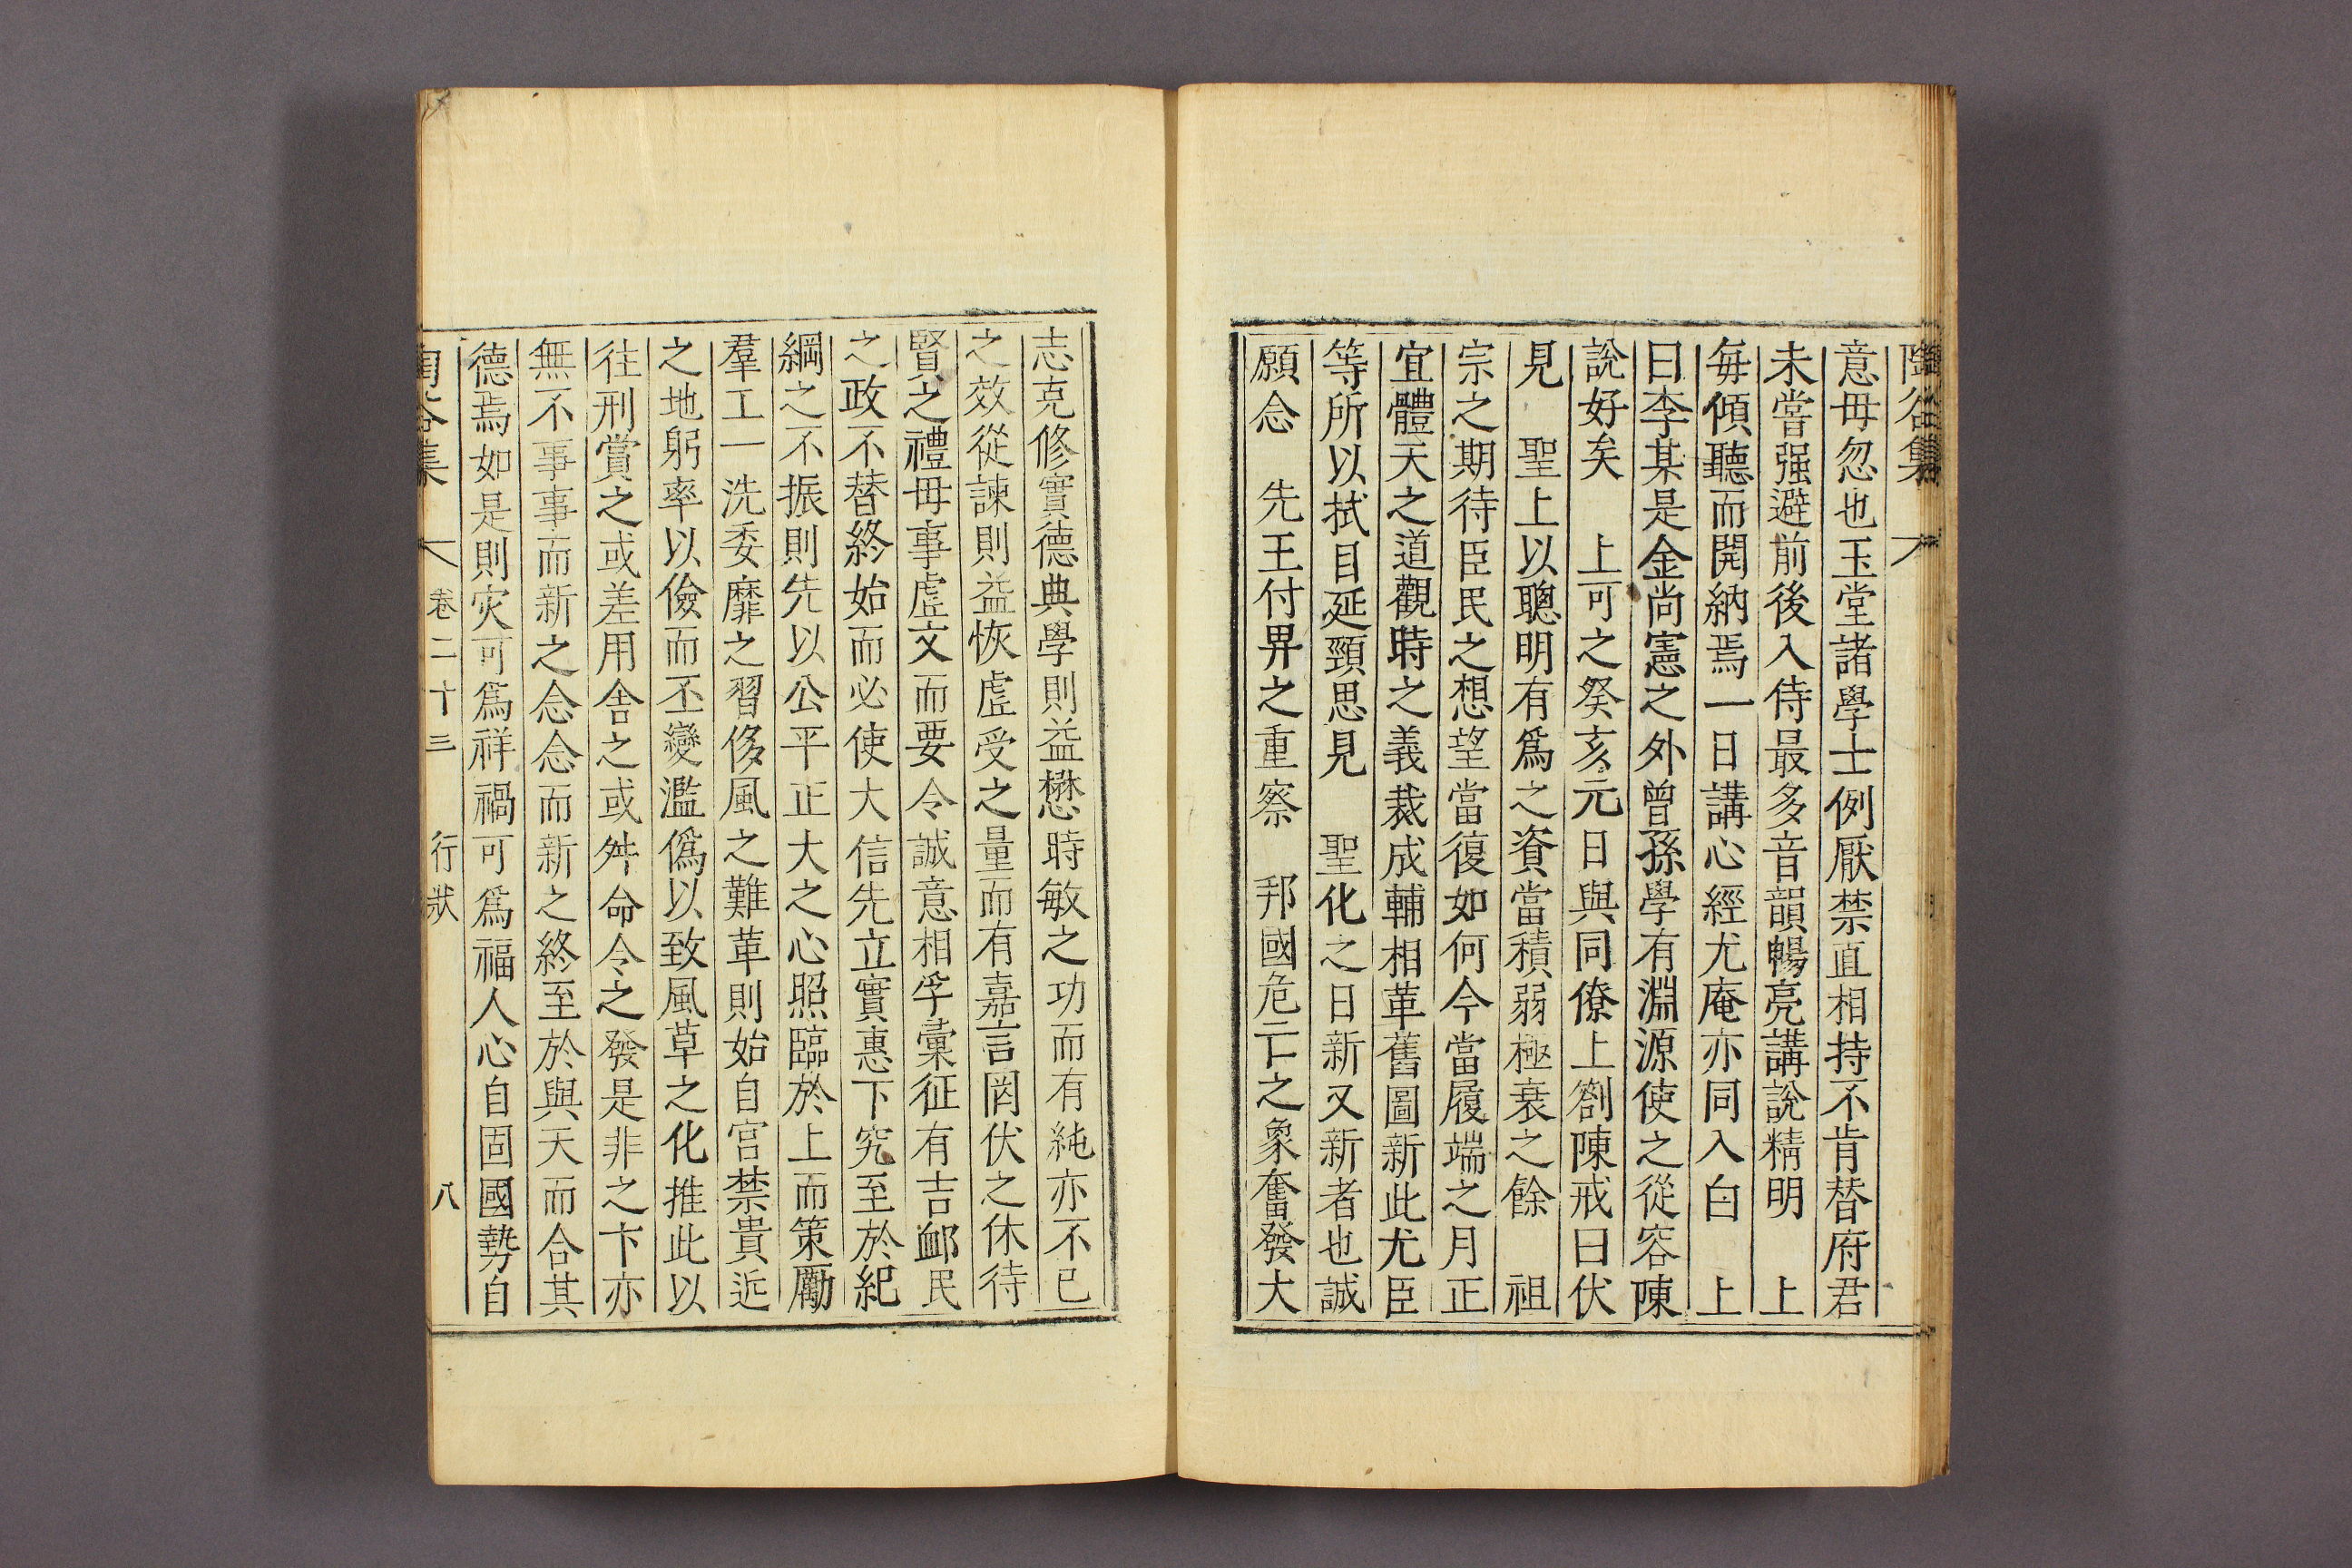 陶谷集
意毋忽也玉堂諸學士例厭禁直相持不肯替府君
未嘗强避前後入侍最多音韻暢亮講說精明 上
每傾聽而開納焉一日講心經尤庵亦同入白 上
曰李某是金尙憲之外曾孫學有淵源使之從容陳
說好矣 上可之癸亥元日與同僚上劄陳戒曰伏
見 聖上以聰明有爲之資當積弱極衰之餘 祖
宗之期待臣民之想望當復如何今當履端之月正
宜體天之道觀時之義裁成輔相革舊圖新此尤臣
等所以拭目延頸思見 聖化之日新又新者也誠
願念 先王付畀之重察 邦國危亡之象奮發大
志克修實德典學則益懋時敏之功而有純亦不已
之效從諫則益恢虛受之量而有嘉言罔伏之休待
賢之禮毋事虛文而要令誠意相孚彙征有吉䘏民
之政不替終始而必使大信先立實惠下究至於紀
綱之不振則先以公平正大之心照臨於上而策勵
羣工一洗委靡之習侈風之難革則始自宮禁貴近
之地躬率以儉而丕變濫僞以致風草之化推此以
往刑賞之或差用舍之或舛命令之發是非之卞亦
無不事事而新之念念而新之終至於與天而合其
德焉如是則灾可爲祥禍可爲福人心自固國勢自
陶谷集 卷二十三 行狀 八